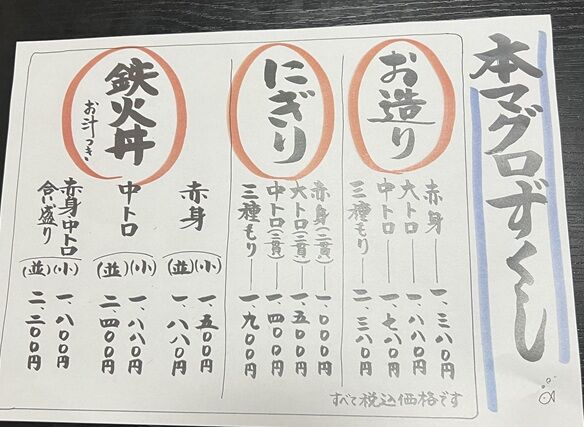 本マグロずくし
お造り
赤身 一、三八〇円
大トロ 一、八八〇円
中トロ 一、七八〇円
三種もり 二、三八〇円
にぎり
赤身(二貫) 一、〇〇〇円
大トロ(二貫) 一、五〇〇円
中トロ(二貫) 一、四〇〇円
三種もり 一、九〇〇円
鉄火丼
お汁つき
赤身
(小) 一、五〇〇円
(並) 一、八八〇円
中トロ
(小) 一、八八〇円
(並) 二、四〇〇円
赤身中トロ
合い盛り
(小) 一、八〇〇円
(並) 二、二〇〇円
すべて税込価格です